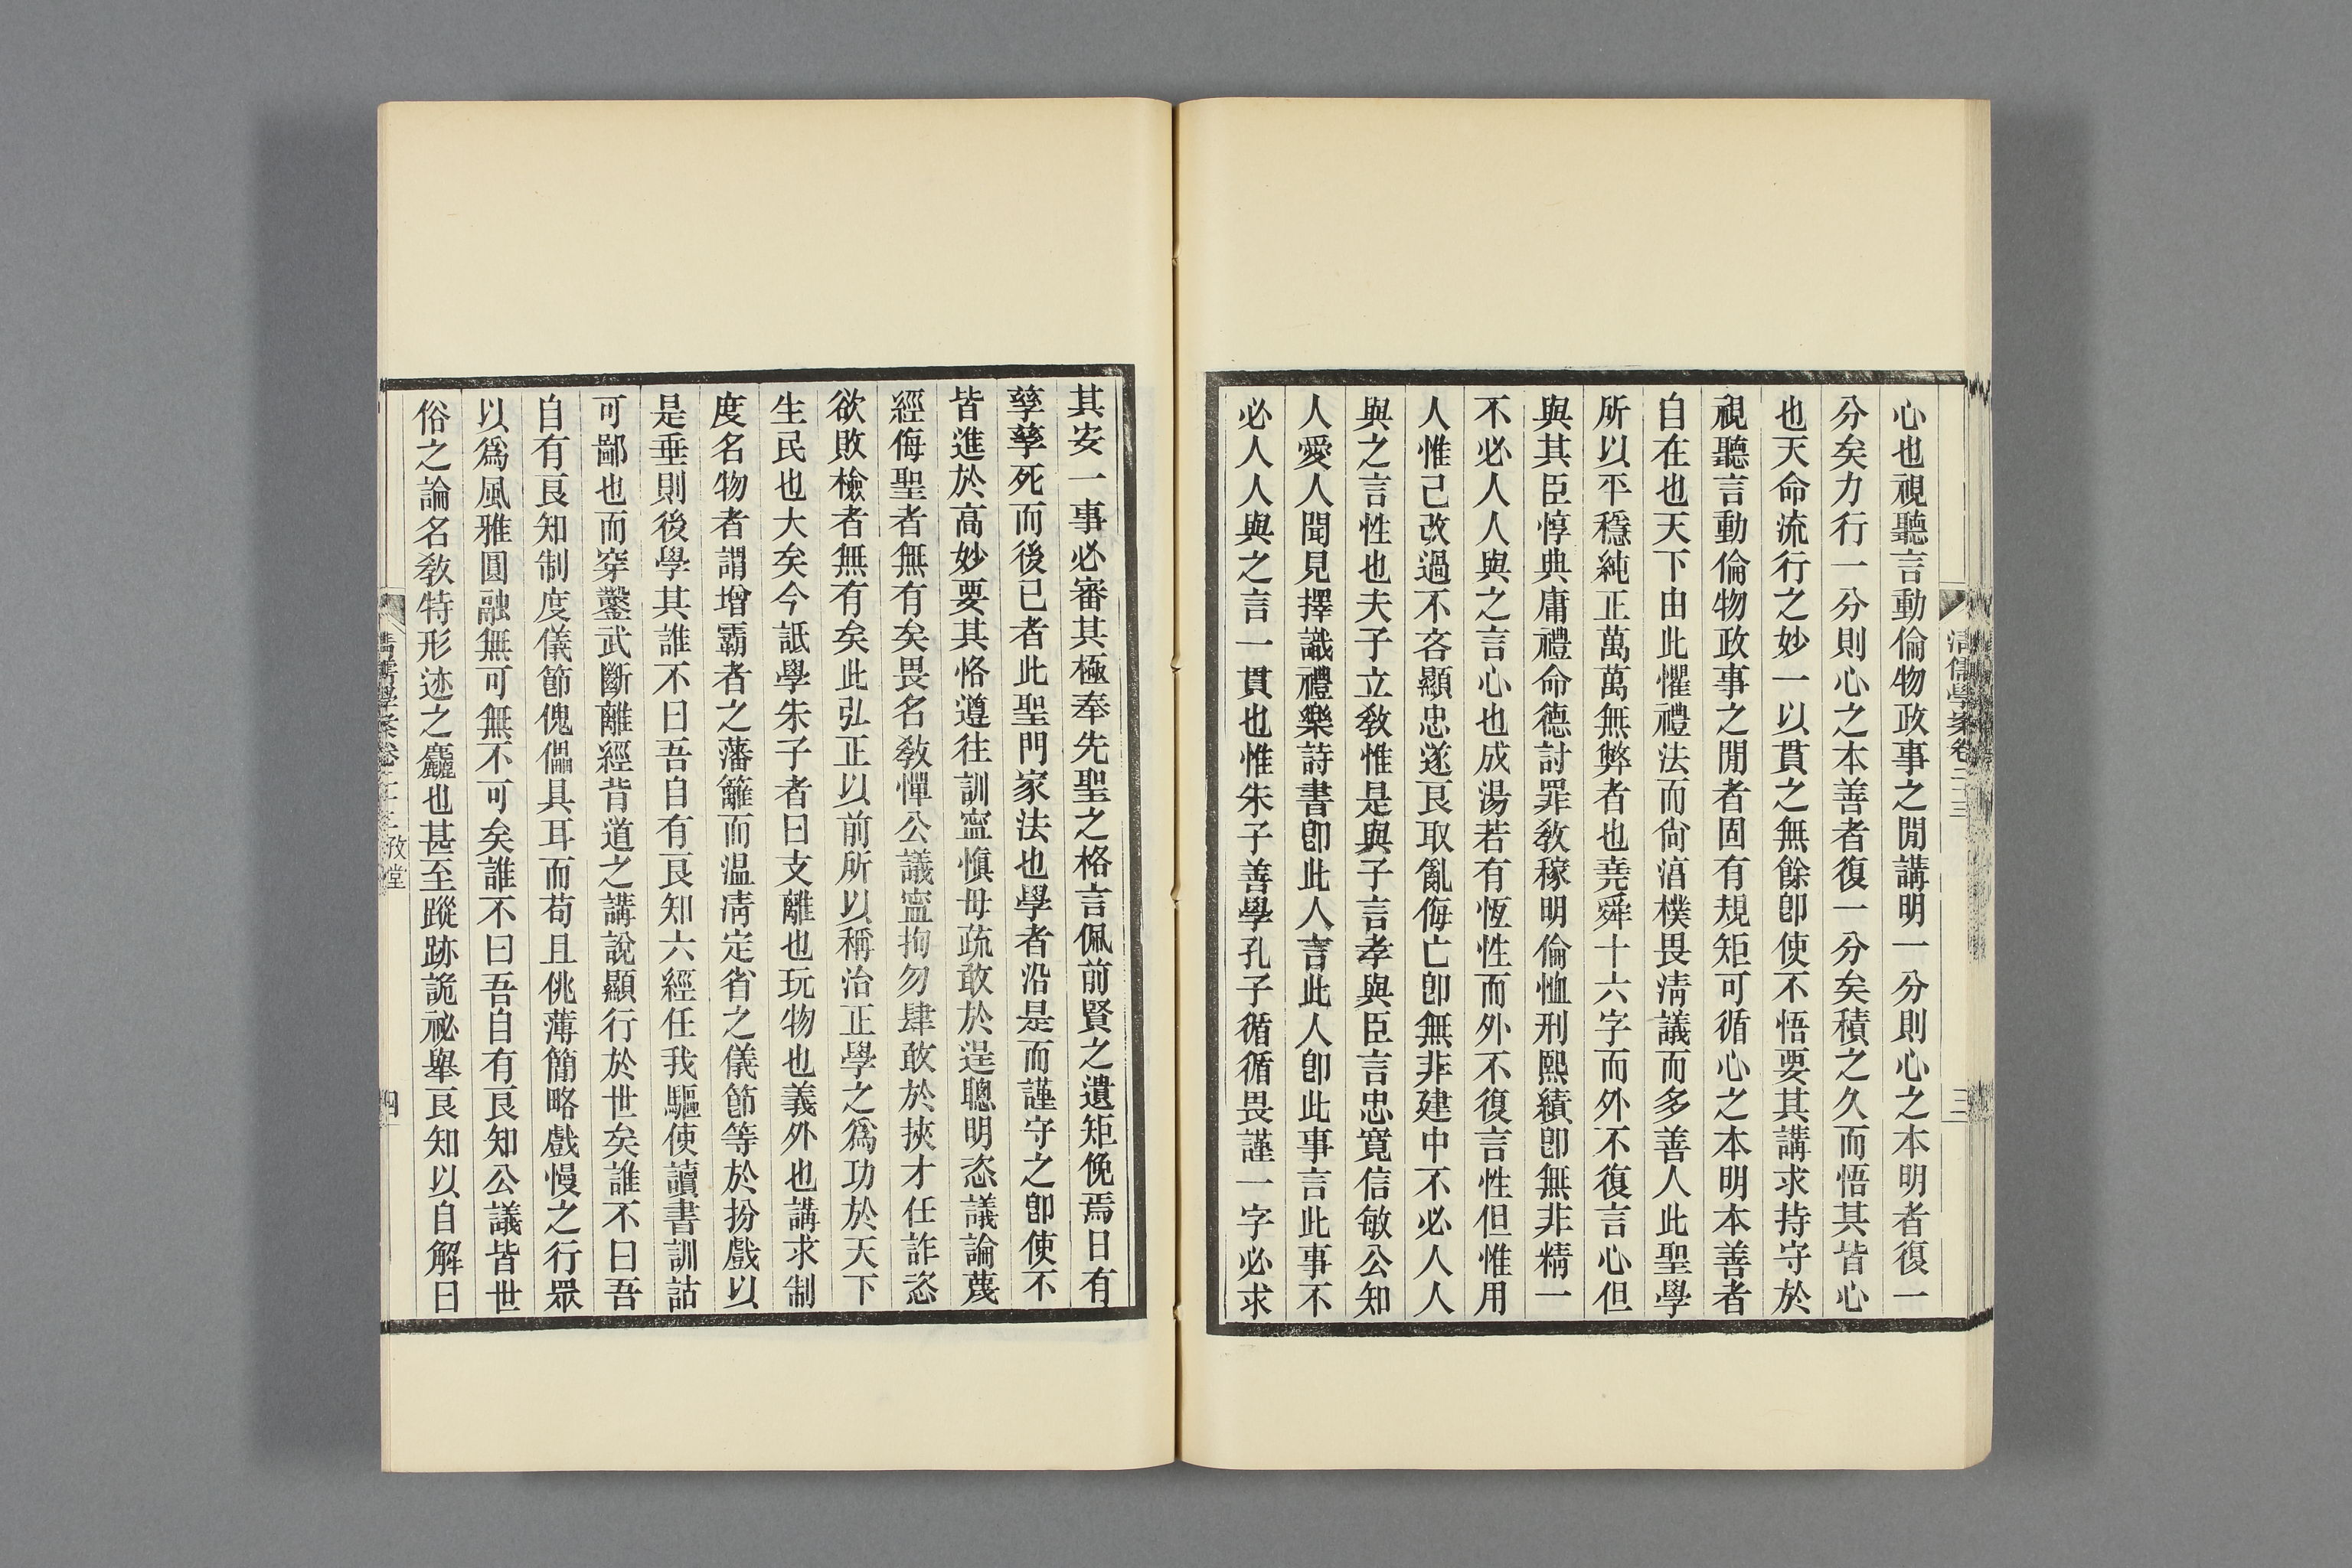 清儒學案卷二十三
三
心也視聽言動倫物政事之閒講明一分則心之本明者復一
分矣力行一分則心之本善者復一分矣積之久而悟其皆心
也天命流行之妙一以貫之無餘卽使不悟要其講求持守於
視聽言動倫物政事之閒者固有規矩可循心之本明本善者
自在也天下由此懼禮法而尙淳樸畏淸議而多善人此聖學
所以平穩純正萬萬無弊者也堯舜十六字而外不復言心但
與其臣惇典庸禮命德討罪敎稼明倫恤刑熙績卽無非精一
不必人人與之言心也成湯若有恆性而外不復言性但惟用
人惟己改過不吝顯忠遂良取亂侮亡卽無非建中不必人人
與之言性也夫子立敎惟是與子言孝與臣言忠寬信敏公知
人愛人聞見擇識禮樂詩書卽此人言此人卽此事言此事不
必人人與之言一貫也惟朱子善學孔子循循畏謹一字必求
其安一事必審其極奉先聖之格言佩前賢之遺矩俛焉日有
孳孳死而後已者此聖門家法也學者沿是而謹守之卽使不
皆進於高妙要其恪遵往訓寍愼毋疏敢於逞聰明恣議論蔑
經侮聖者無有矣畏名敎憚公議寍拘勿肆敢於挾才任詐恣
欲敗檢者無有矣此弘正以前所以稱治正學之爲功於天下
生民也大矣今詆學朱子者曰支離也玩物也義外也講求制
度名物者謂增霸者之藩籬而溫凊定省之儀節等於扮戲以
是垂則後學其誰不曰吾自有良知六經任我驅使讀書訓詁
可鄙也而穿鑿武斷離經背道之講說顯行於世矣誰不曰吾
自有良知制度儀節傀儡具耳而苟且佻薄簡略戲慢之行眾
以爲風雅圓融無可無不可矣誰不曰吾自有良知公議皆世
俗之論名敎特形迹之麤也甚至蹤跡詭祕舉良知以自解曰
清儒學案卷二十三
四